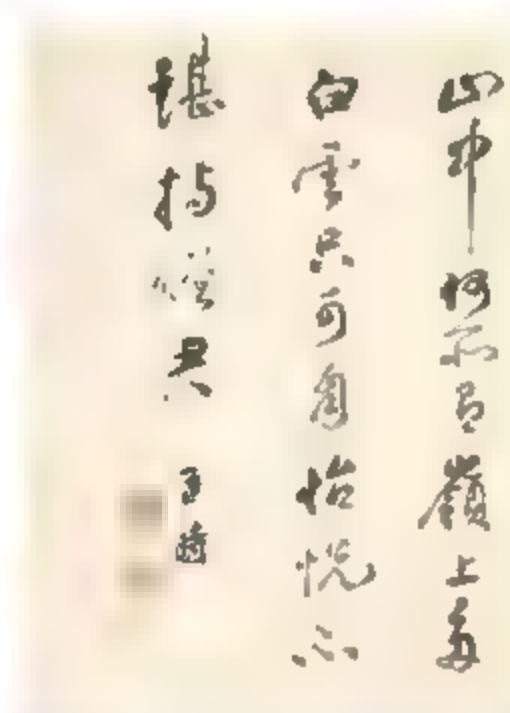 山中何所有嶺上多
白雲只可自怡悅不
堪持贈君